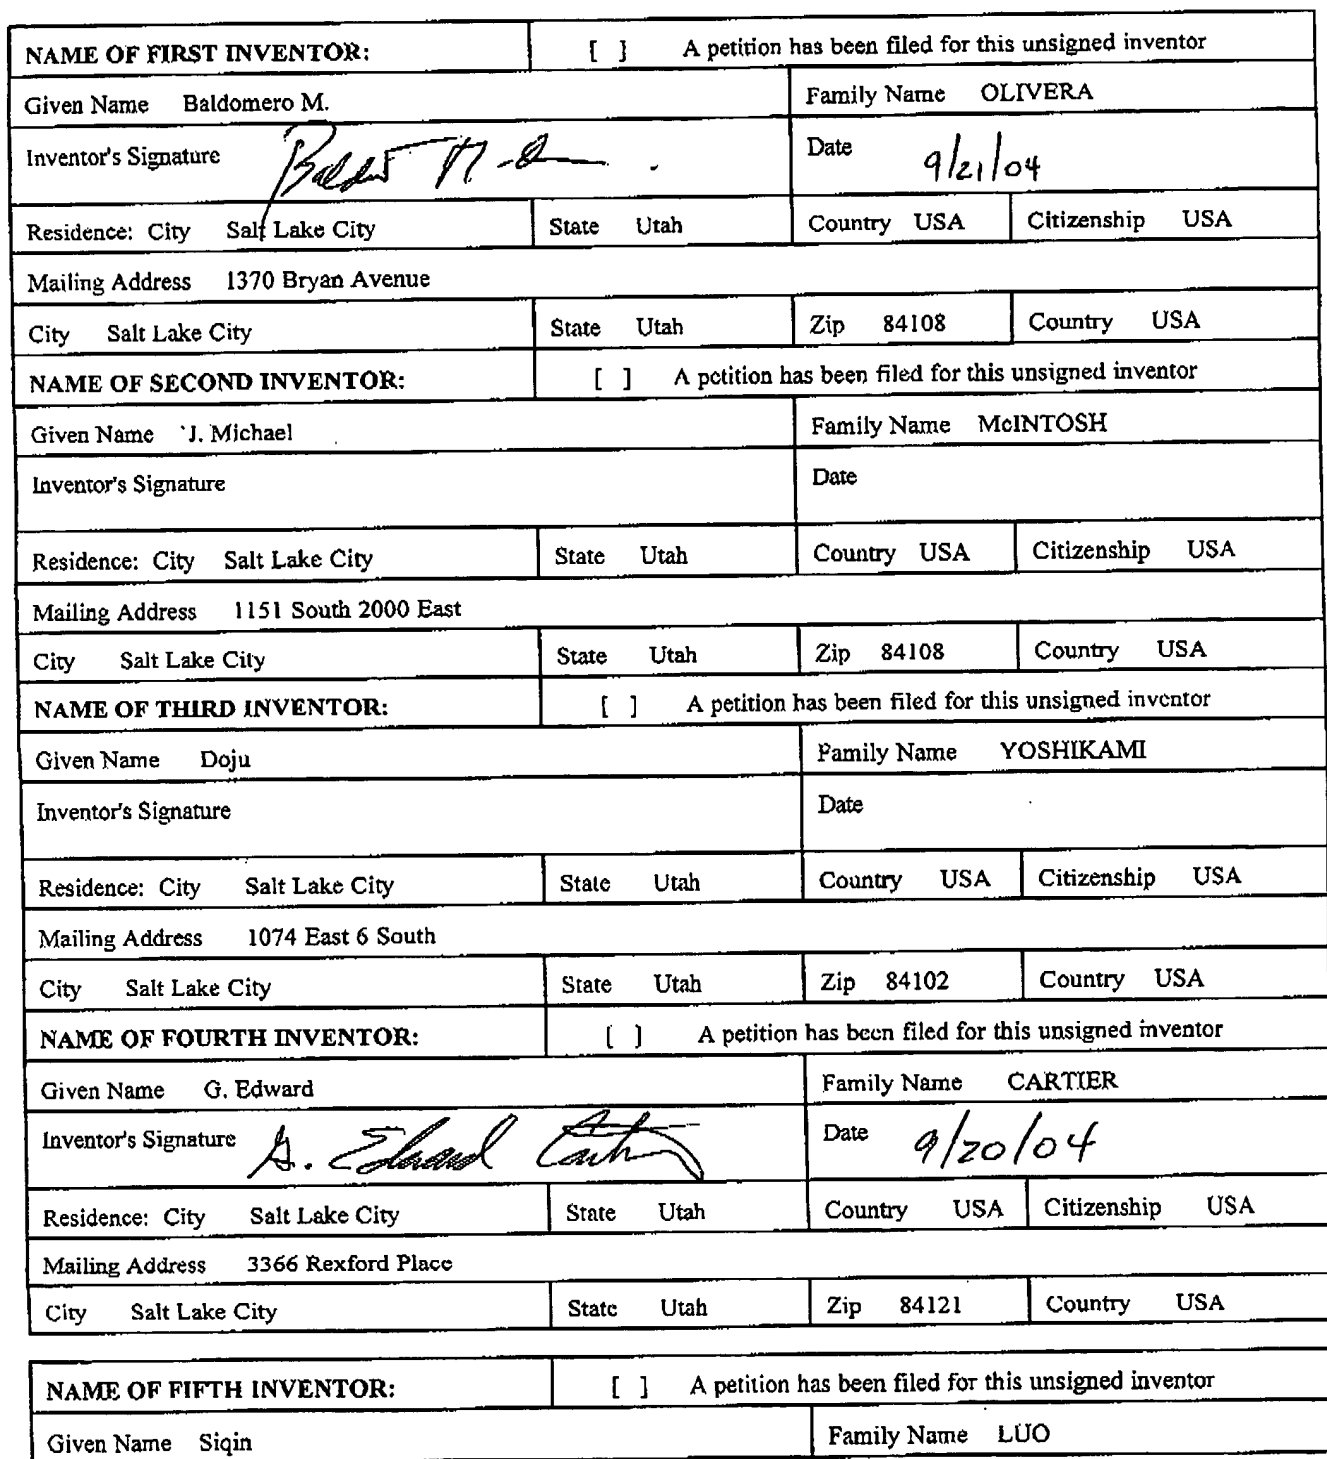 NAME OF FIRST INVENTOR: [ ] A petition has been filed for this unsigned inventor
Given Name Baldomero M. Family Name OLIVERA
Inventor's Signature Date 9/21/04
Residence: City Salt Lake City State Utah Country USA Citizenship USA
Mailing Address 1370 Bryan Avenue
City Salt Lake City State Utah Zip 84108 Country USA
NAME OF SECOND INVENTOR: [ ] A petition has been filed for this unsigned inventor
Given Name J. Michael Family Name McINTOSH
Inventor's Signature Date
Residence: City Salt Lake City State Utah Country USA Citizenship USA
Mailing Address 1151 South 2000 East
City Salt Lake City State Utah Zip 84108 Country USA
NAME OF THIRD INVENTOR: [ ] A petition has been filed for this unsigned inventor
Given Name Doju Family Name YOSHIKAMI
Inventor's Signature Date
Residence: City Salt Lake City State Utah Country USA Citizenship USA
Mailing Address 1074 East 6 South
City Salt Lake City State Utah Zip 84102 Country USA
NAME OF FOURTH INVENTOR: [ ] A petition has been filed for this unsigned inventor
Given Name G. Edward Family Name CARTIER
Inventor's Signature G. Edward Cartier Date 9/20/04
Residence: City Salt Lake City State Utah Country USA Citizenship USA
Mailing Address 3366 Rexford Place
City Salt Lake City State Utah Zip 84121 Country USA
NAME OF FIFTH INVENTOR: [ ] A petition has been filed for this unsigned inventor
Given Name Siqin Family Name LUO